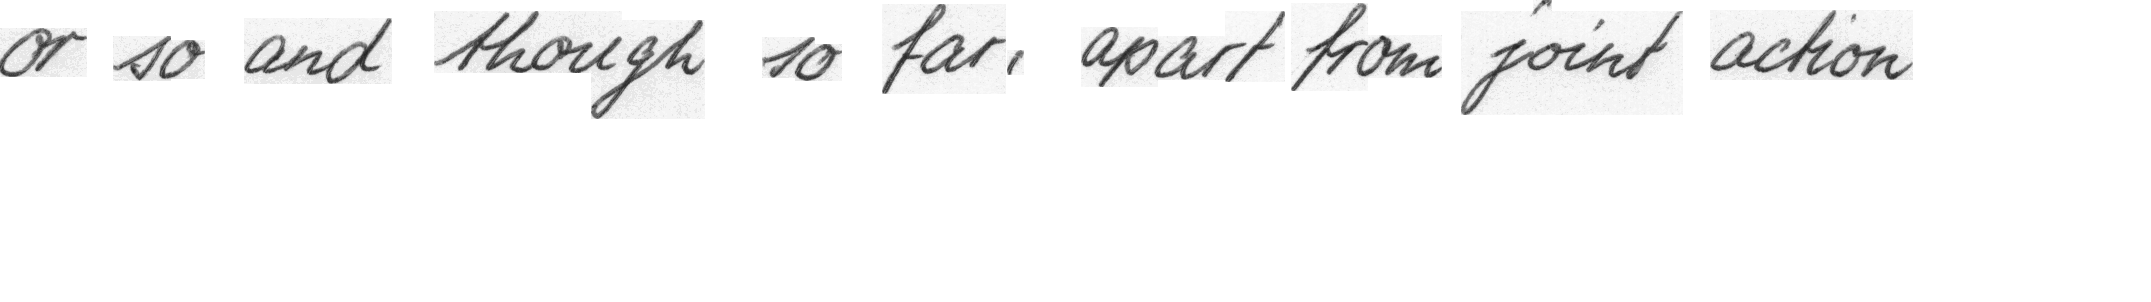 or so and though so far, apart from joint action